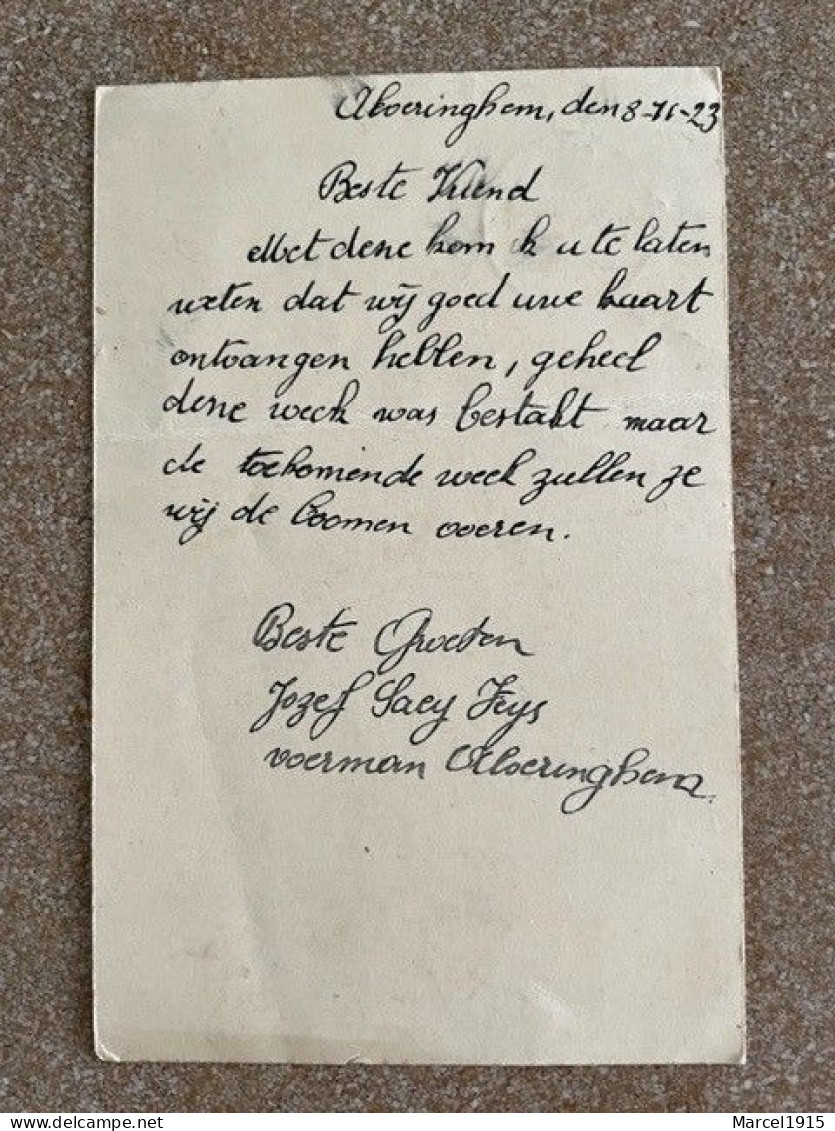 Alveringhem, den 8-11-23
Beste Vriend
Met dene kom ik u te laten
weten dat wij goed uwe kaart
ontvangen hebben, geheel
dene week was bestakt maar
de toekomende week zullen ze
wij de boomen voeren.
Beste Groeten
Jozef Saey Feys
voerman Alveringhem
Marcel1915